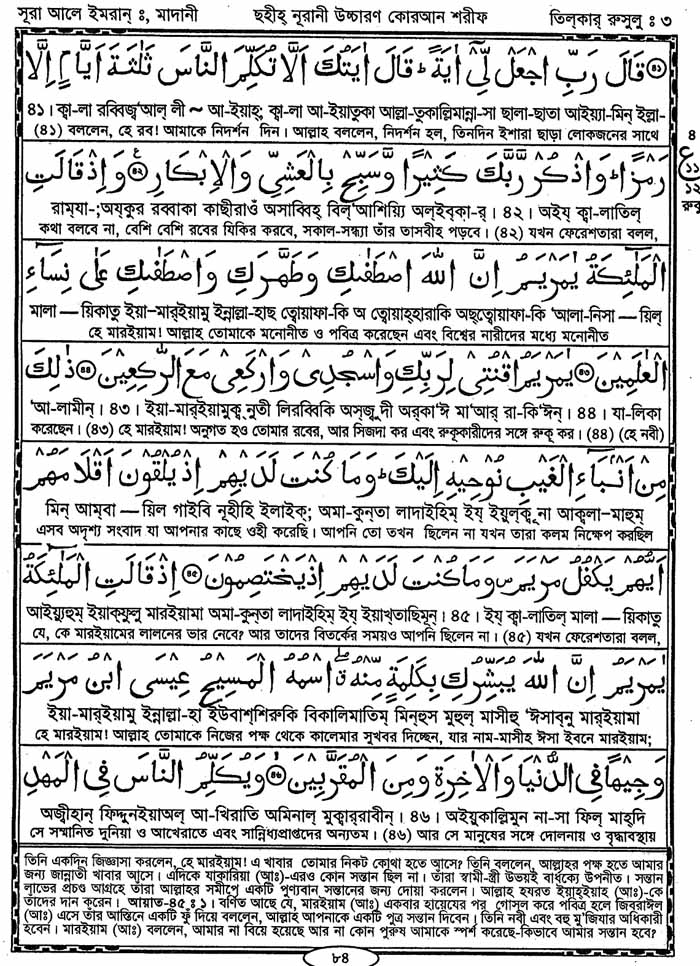 সূরা আলে ইমরান ঃ, মাদানী
ছহীহ্ নূরানী উচ্চারণ কোরআন শরীফ
তিল্কার্ রুসুলু ঃ ৩
﴿٤١﴾ قَالَ رَبِّ اجْعَلْ لِّيْٓ اٰيَةً ؕ قَالَ اٰيَتُكَ اَلَّا تُكَلِّمَ النَّاسَ ثَلٰثَةَ اَيَّامٍ اِلَّا
৪১। ক্বা-লা রব্বিজ্ব‘আল্ লী ~ আ-ইয়াহ্; ক্বা-লা আ-ইয়াতুকা আল্লা-তুকাল্লিমান্না-সা ছালা-ছাতা আইয়্যা-মিন্ ইল্লা-
(৪১) বললেন, হে রব! আমাকে নিদর্শন দিন। আল্লাহ্ বললেন, নিদর্শন হল, তিনদিন ইশারা ছাড়া লোকজনের সাথে
৪
ع
১১
১২
রুকূ
رَمْزًا ؕ وَاذْكُرْ رَّبَّكَ كَثِيْرًا وَّسَبِّحْ بِالْعَشِيِّ وَالْاِبْكَارِ ﴿٤٢﴾ وَاِذْ قَالَتِ
রাম্যা-; অয্কুর রব্বাকা কাছীরাওঁ অসাব্বিহ্ বিল্‘আশিয়্যি অল্ইব্কা-র্। ৪২। অইয্ ক্বা-লাতিল্
কথা বলবে না, বেশি বেশি রবের যিকির করবে, সকাল-সন্ধ্যা তাঁর তাসবীহ পড়বে। (৪২) যখন ফেরেশতারা বলল,
الْمَلٰٓئِكَةُ يٰمَرْيَمُ اِنَّ اللّٰهَ اصْطَفٰىكِ وَطَهَّرَكِ وَاصْطَفٰىكِ عَلٰى نِسَآءِ
মালা — য়িকাতু ইয়া-মার্ইয়ামু ইন্নাল্লা-হাছ্ ত্বোয়াফা-কি অ ত্বোয়াহ্হারাকি অছ্ত্বোয়াফা-কি ‘আলা-নিসা — য়িল্
হে মারইয়াম! আল্লাহ্ তোমাকে মনোনীত ও পবিত্র করেছেন এবং বিশ্বের নারীদের মধ্যে মনোনীত
الْعٰلَمِيْنَ ﴿٤٣﴾ يٰمَرْيَمُ اقْنُتِيْ لِرَبِّكِ وَاسْجُدِيْ وَارْكَعِيْ مَعَ الرّٰكِعِيْنَ ﴿٤٤﴾ ذٰلِكَ
‘আ-লামীন্। ৪৩। ইয়া-মার্ইয়ামুক্ব্ নুতী লিরব্বিকি অস্জুদী অর্কা‘ঈ মা‘আর্ রা-কি‘ঈন্। ৪৪। যা-লিকা
করেছেন। (৪৩) হে মারইয়াম! অনুগত হও তোমার রবের, আর সিজদা কর এবং রুকূকারীদের সঙ্গে রুকূ কর। (৪৪) (হে নবী)
مِنْ اَنْۢبَآءِ الْغَيْبِ نُوْحِيْهِ اِلَيْكَ ؕ وَمَا كُنْتَ لَدَيْهِمْ اِذْ يُلْقُوْنَ اَقْلَامَهُمْ
মিন্ আম্বা — য়িল গাইবি নূহীহি ইলাইক্; অমা-কুন্তা লাদাইহিম্ ইয্ ইয়ুল্ক্বূনা আক্বলা-মাহুম্
এসব অদৃশ্য সংবাদ যা আপনার কাছে ওহী করেছি। আপনি তো তখন ছিলেন না যখন তারা কলম নিক্ষেপ করছিল
اَيُّهُمْ يَكْفُلُ مَرْيَمَ ۪ وَمَا كُنْتَ لَدَيْهِمْ اِذْ يَخْتَصِمُوْنَ ﴿٤٥﴾ اِذْ قَالَتِ الْمَلٰٓئِكَةُ
আইয়্যুহুম্ ইয়াক্ফুলু মারইয়ামা অমা-কুন্তা লাদাইহিম্ ইয্ ইয়াখ্তাছিমূন্। ৪৫। ইয্ ক্বা-লাতিল্ মালা — য়িকাতু
যে, কে মারইয়ামের লালনের ভার নেবে? আর তাদের বিতর্কের সময়ও আপনি ছিলেন না। (৪৫) যখন ফেরেশতারা বলল,
يٰمَرْيَمُ اِنَّ اللّٰهَ يُبَشِّرُكِ بِكَلِمَةٍ مِّنْهُ ٭ۖ اسْمُهُ الْمَسِيْحُ عِيْسَى ابْنُ مَرْيَمَ
ইয়া-মার্ইয়ামু ইন্নাল্লা-হা ইউবাশ্শিরুকি বিকালিমাতিম্ মিন্হুস মুহুল্ মাসীহু ‘ঈসাব্নু মার্ইয়ামা
হে মারইয়াম! আল্লাহ তোমাকে নিজের পক্ষ থেকে কালেমার সুখবর দিচ্ছেন, যার নাম-মাসীহ ঈসা ইবনে মারইয়াম;
وَجِيْهًا فِي الدُّنْيَا وَالْاٰخِرَةِ وَمِنَ الْمُقَرَّبِيْنَ ﴿٤٦﴾ وَيُكَلِّمُ النَّاسَ فِي الْمَهْدِ
অজ্বীহান্ ফিদ্দুনইয়াঅল্ আ-খিরাতি অমিনাল্ মুক্বার্রাবীন্। ৪৬। অইয়ুকাল্লিমুন না-সা ফিল্ মাহ্দি
সে সম্মানিত দুনিয়া ও আখেরাতে এবং সান্নিধ্যপ্রাপ্তদের অন্যতম। (৪৬) আর সে মানুষের সঙ্গে দোলনায় ও বৃদ্ধাবস্থায়
তিনি একদিন জিজ্ঞাসা করলেন, হে মারইয়াম! এ খাবার তোমার নিকট কোথা হতে আসে? তিনি বললেন, আল্লাহর পক্ষ হতে আমার
জন্য জান্নাতী খাবার আসে। এদিকে যাকারিয়া (আঃ)-এরও কোন সন্তান ছিল না। তাঁরা স্বামী-স্ত্রী উভয়ই বার্ধক্যে উপনীত। সন্তান
লাভের প্রচণ্ড আগ্রহে তাঁরা আল্লাহর সমীপে একটি পুণ্যবান সন্তানের জন্য দোয়া করলেন। আল্লাহ হযরত ইয়াহ্ইয়াহ (আঃ)-কে
তাঁদের দান করেন। আয়াত-৪৫ ঃ ১। বর্ণিত আছে যে, মারইয়াম (আঃ) একবার হায়েযের পর গোসল করে পবিত্র হলে জিবরাঈল
(আঃ) এসে তাঁর আস্তিনে একটি ফুঁ দিয়ে বললেন, আল্লাহ আপনাকে একটি পুত্র সন্তান দিবেন। তিনি নবী এবং বহু মু‘জিযার অধিকারী
হবেন। মারইয়াম (আঃ) বললেন, আমার না বিয়ে হয়েছে আর না কোন পুরুষ আমাকে স্পর্শ করেছে-কিভাবে আমার সন্তান হবে?
৮৪